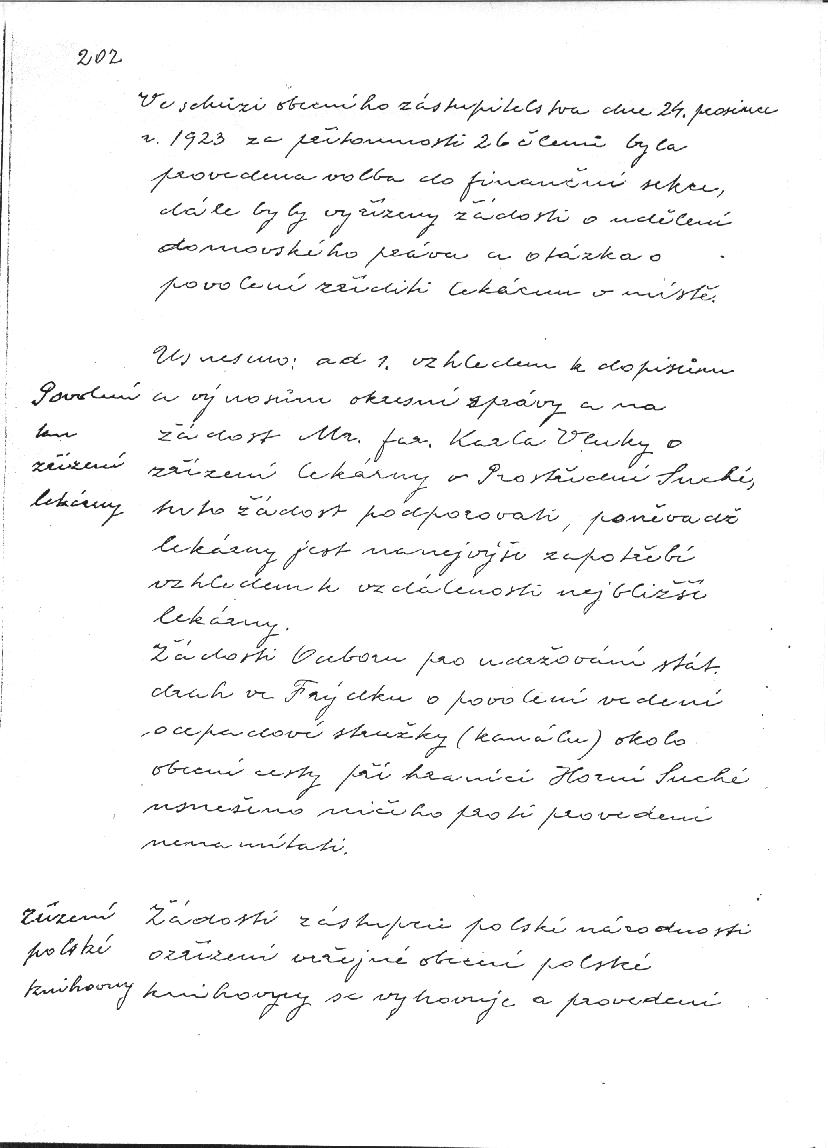 202
Ve schůzi obecního zástupitelstva dne 24. prosince
r. 1923 za přítomnosti 26 členů byla
provedena volba do finanční sekce,
dále byly vyřízeny žádosti o udělení
domovského práva a otázka o
povolení zříditi lekárnu v místě.
Usneseno: ad 1. vzhledem k dopisům
a výnosům okresní správy a na
žádost Mr. far. Karla Vluky o
zřízení lekárny v Prostřední Suché,
tuto žádost podporovati, poněvadž
lekárny jest nanejvýše zapotřebí
vzhledem k vzdálenosti nejbližší
lekárny.
Povolení
ku
zřízení
lekárny
Žádosti Odboru pro udržování stát.
drah ve Frýdku o povolení vedení
odpadové stružky (kanálu) okolo
obecní cesty při hranici Horní Suché
usnešeno ničeho proti provedení
nenamítati.
Zřízení
polské
knihovny
Žádosti zástupců polské národnosti
o zřízení veřejné obecní polské
knihovny se vyhovuje a provedení